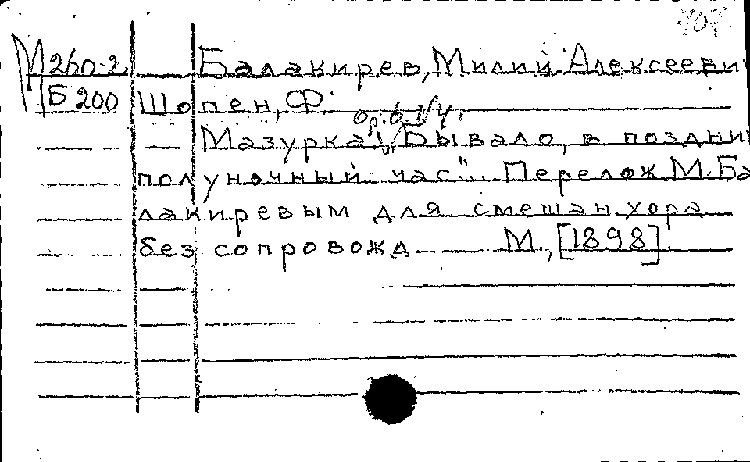 707
М260-2 Балакирев, Милий Алексееви
Б200 Шопен, Ф.
ор. 6 №4.
Мазурка „Бывало, в поздни
полуночный час". Перелож. М. Ба
лакиревым для смешан. хора
без сопровожд М., [1898]